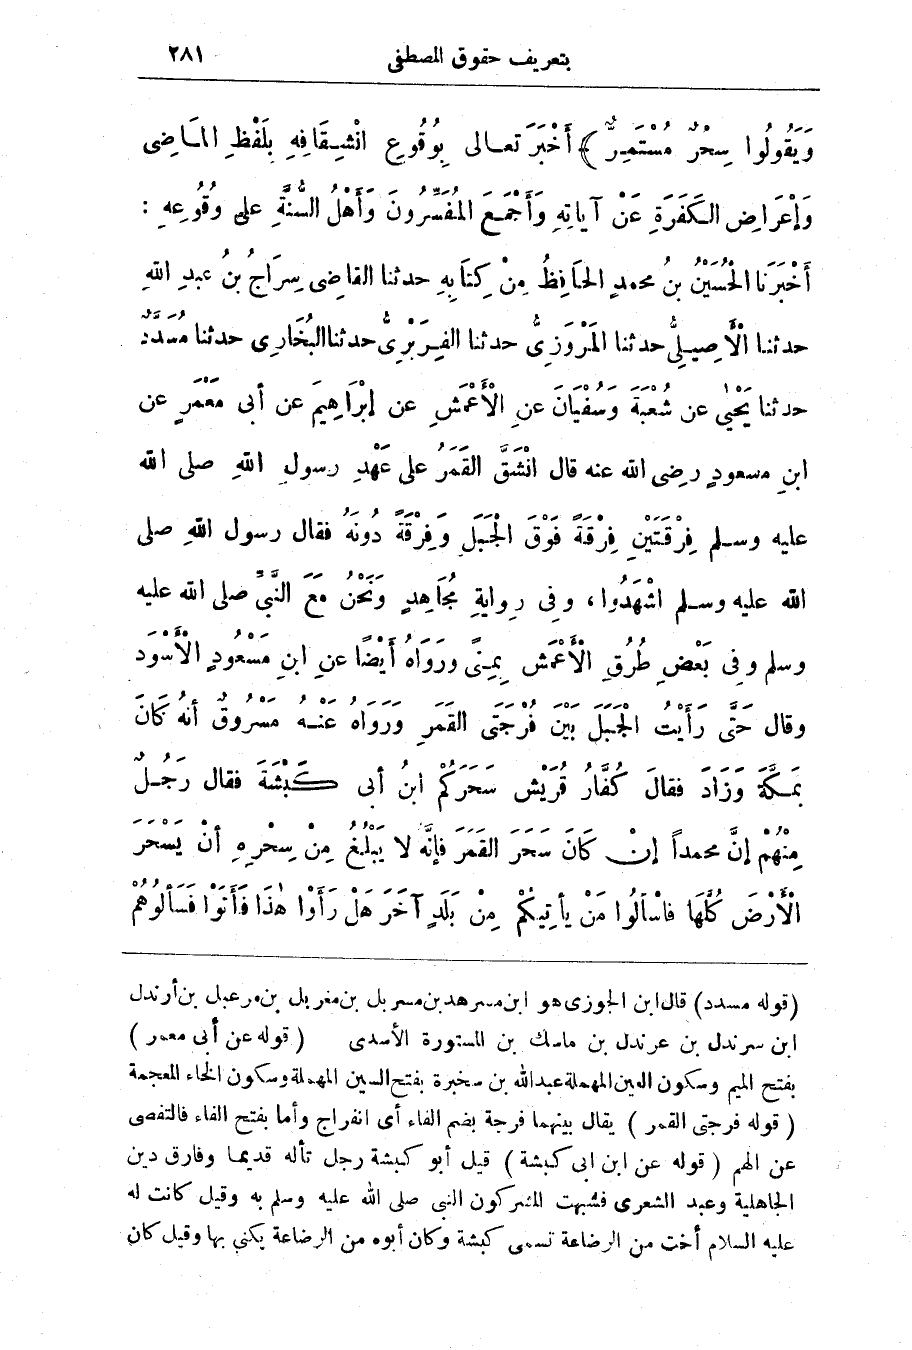 بتعريف حقوق المصطفى
٢٨١
وَيَقُولُوا سِحْرٌ مُسْتَمِرٌّ ﴾ أَخْبَرَ تعـالى بِوُقُوعِ انْشِـقَافِهِ بِلَفْظِ المَـاضِى
وَإِعْرَاضِ الـكَفَرَةِ عَنْ آيَاتِهِ وَأَجْمَعَ المُفَسِّرُونَ وَأَهْلُ السُّنَّةِ على وُقُوعِهِ :
أَخْبَرَنَا الْحُسَيْنُ بنُ محمدٍ الحَافِظُ مِنْ كِتَابِهِ حدثنا القاضى سِرَاجُ بنُ عبدِ اللهِ
حدثنـا الْأَصِيـلِىُّ حدثنا المَرْوَزِىُّ حدثنا الفِرَبْرِىُّ حدثنا البُخَارِى حدثنا مُسَدَّدٌ
حدثنا يَحْيَى عن شُعْبَةَ وَسُفْيَانَ عنِ الْأَعْمَشِ عن إِبْرَاهِيمَ عن أبى مَعْمَرٍ عن
ابنِ مسعودٍ رضى الله عنه قال انْشَقَّ القَمَرُ على عَهْدِ رسولِ اللهِ صلى الله
عليه وسـلم فِرْقَتَيْنِ فِرْقَةً فَوْقَ الْجَبَلِ وَفِرْقَةً دُونَهُ فقال رسول اللهِ صلى
الله عليه وسـلم اشْهَدُوا، وفى روايةِ مُجَاهِدٍ وَنَحْنُ مَعَ النَّبِىِّ صلى الله عليه
وسلم وفى بَعْضِ طُرُقِ الْأَعْمَشِ بِمِنًى ورَوَاهُ أَيْضًا عنِ ابنِ مَسْعُودٍ الْأَسْوَد
وقال حَتَّى رَأَيْت الْجَبَلَ بَيْنَ فُرْجَتَى القَمَرِ وَرَوَاهُ عَنْـهُ مَسْرُوقٌ أنهُ كَانَ
بِمَـكَّةَ وَزَادَ فقالَ كُفَّارُ قُرَيْشٍ سَحَرَكُمْ ابنُ أبى كَـبْشَةَ فقال رَجُـلٌ
مِنْهُمْ إِنَّ محمداً إِنْ كَانَ سَحَرَ القَمَرَ فإنَّه لا يَبْلُغُ مِنْ سِحْرِهِ أَنْ يَسْحَرَ
الْأَرْضَ كُلَّهَا فاسْألُوا مَنْ يأتِيكُمْ مِنْ بَلَدٍ آخَرَ هَلْ رَأَوْا هٰذَا فَأَتَوْا فَسَألُوهُمْ
(قوله مسدد) قال ابن الجوزى هو ابن مسرهد بن مسربل بن مغربل بن مرعبل بن أرندل
ابن سرندل بن عرندل بن ماسك بن المستورة الأسدى ( قوله عن أبى معمر )
بفتح الميم وسكون العين المهملة عبدالله بن سخبرة بفتح السين المهملة وسكون الخاء المعجمة
( قوله فرجتى القمر ) يقال بينهما فرجة بضم الفاء أى انفراج وأما بفتح الفاء فالتفصى
عن الهم ( قوله عن ابن ابى كبشة ) قيل أبو كبشة رجل تأله قديما وفارق دين
الجاهلية وعبد الشعرى فشبهت المشركون النبى صلى الله عليه وسلم به وقيل كانت له
عليه السلام أخت من الرضاعة تسمى كبشة وكان أبوه من الرضاعة يكنى بها وقيل كان